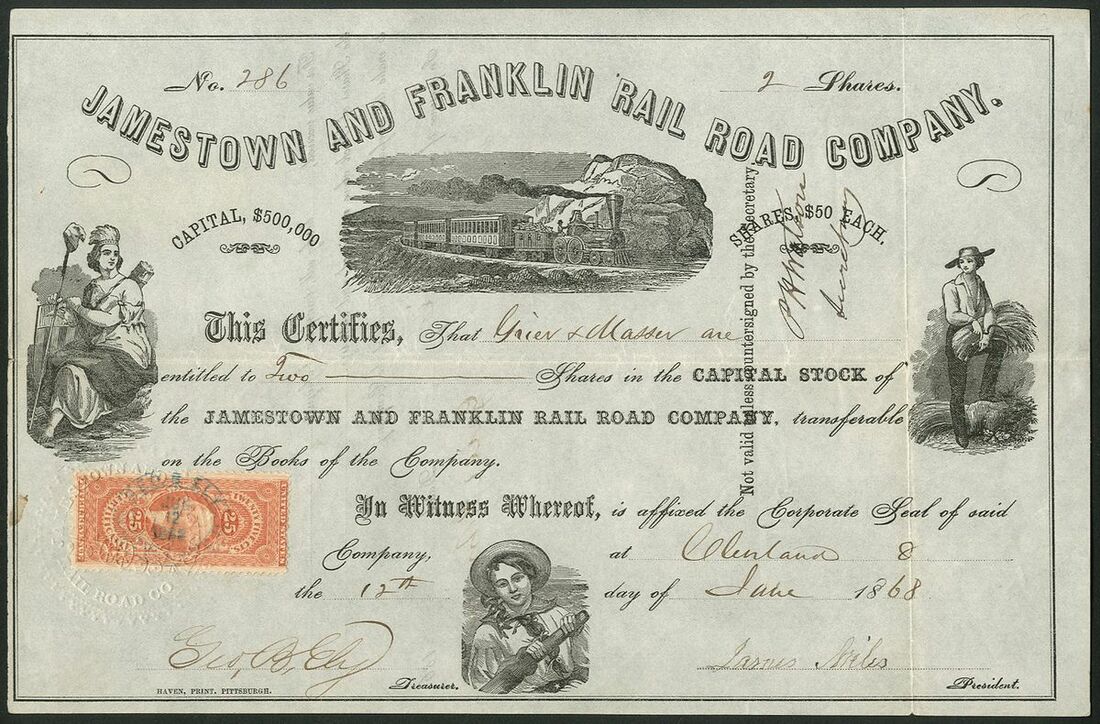 No. 286
2 Shares.
JAMESTOWN AND FRANKLIN RAIL ROAD COMPANY.
CAPITAL, $500,000
SHARES, $50 EACH.
Not valid unless countersigned by the Secretary.
This Certifies, That Grier & Masser are
entitled to Two Shares in the CAPITAL STOCK of
the JAMESTOWN AND FRANKLIN RAIL ROAD COMPANY, transferable
on the Books of the Company.
In Witness Whereof, is affixed the Corporate Seal of said
Company, at Cleveland O
the 12th day of June 1868
Geo. B. Ely Treasurer.
President.
HAVEN, PRINT. PITTSBURGH.
25 25
RAIL ROAD CO